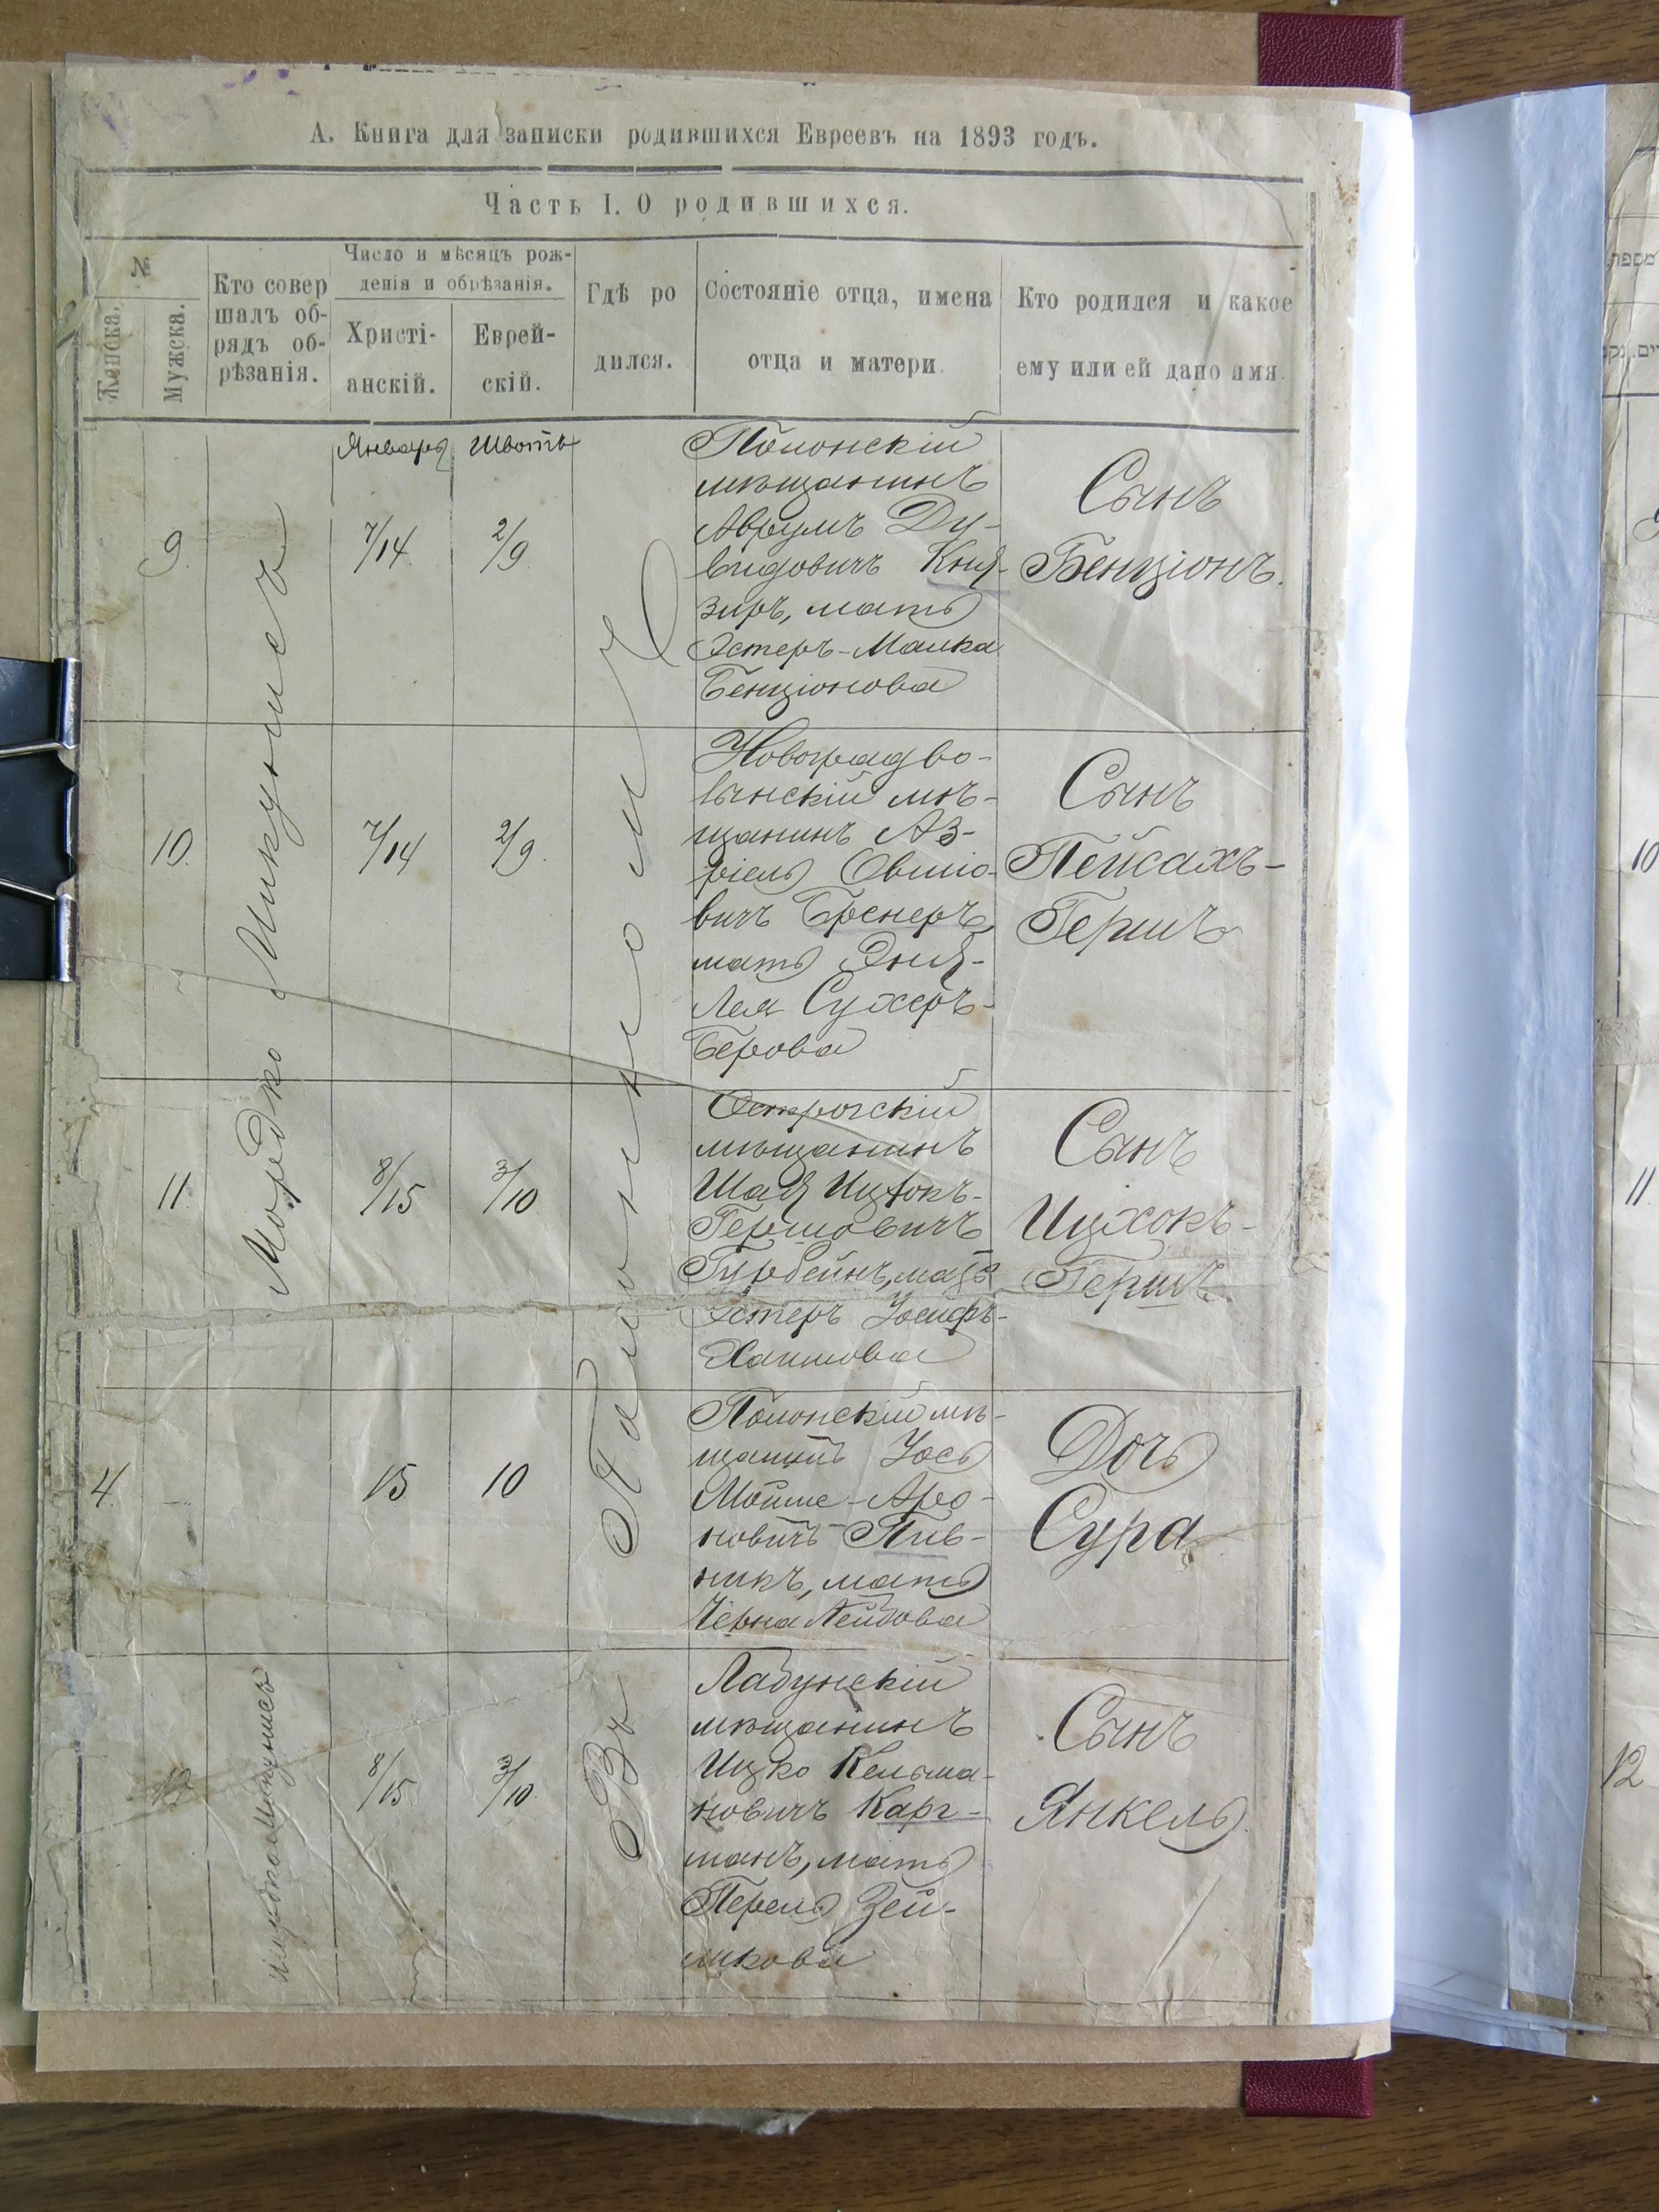 А. Книга для записки родившихся Евреевъ на 1893 годъ.
Часть I. О родившихся.
№
Женска.
Мужска.
Кто совер
шалъ об-
рядъ об-
рѣзанія.
Число и мѣсяцъ рож-
денія и обрѣзанія.
Христі-
анскій.
Еврей-
скій.
Гдѣ ро
дился.
Состояніе отца, имена
отца и матери.
Кто родился и какое
ему или ей дано имя.
Январь
Швотъ
Мордко Микунисъ
Въ Полонномъ
9.
7/14
2/9
Полонскій
мѣщанинъ
Аврумъ Ду-
видовичъ Кня-
зиръ, мать
Эстеръ-Малка
Бенціонова
Сынъ
Бенціонъ.
10.
7/14
2/9.
Новоградво-
лынскій мѣ-
щанинъ Аз-
ріель Овшіо-
вичъ Бренеръ,
мать Эня-
Лея Сухеръ-
Берова
Сынъ
Пейсахъ-
Гершъ
11.
8/15
3/10
Острогскій
мѣщанинъ
Шая Ицхокъ-
Гершовичъ
Гурвейнъ, мать
Эстеръ Іосифъ-
Хаимова
Сынъ
Ицхокъ-
Гершъ.
4.
15
10
Полонскій мѣ-
щанинъ Іось
Мойше-Аро-
новичъ Пив-
никъ, мать
Черна Лейбова
Дочь
Сура
12.
Мордко Микунисъ
8/15
3/10.
Лабунскій
мѣщанинъ
Ицко Кельма-
новичъ Карг-
манъ, мать
Перель Зей-
ликова
Сынъ
Янкель.
10
11
12